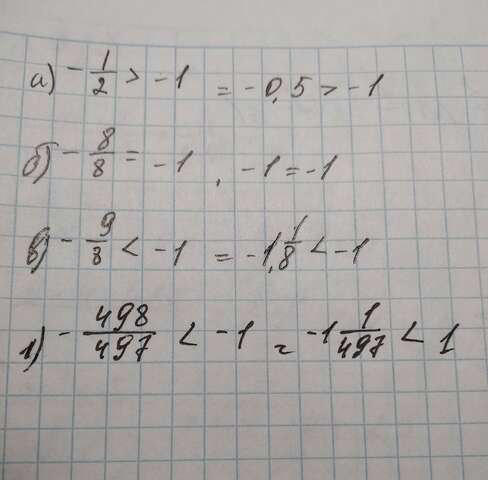 а) - 1/2 > -1 = -0,5 > -1
б) - 8/8 = -1 , -1 = -1
в) - 9/8 < -1 = -1 1/8 < -1
г) - 498/497 < -1 = -1 1/497 < 1